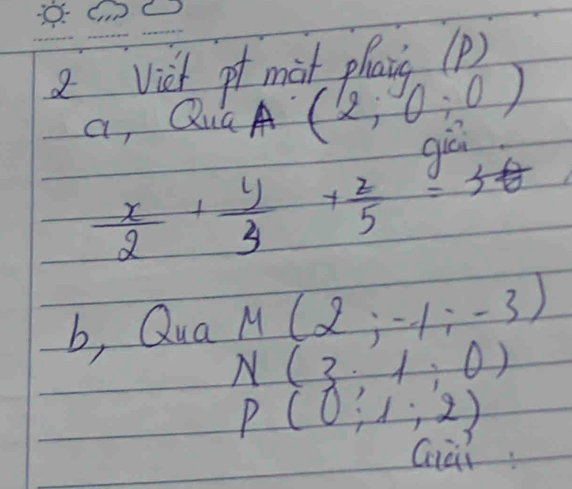 2 Viết pt mặt phẳng (P)
a, Qua A (2; 0; 0)
giải
x/2 + y/3 + z/5 =
b, Qua M (2; -1; -3)
N (3; 1; 0)
P (0; 1; 2)
Giải: